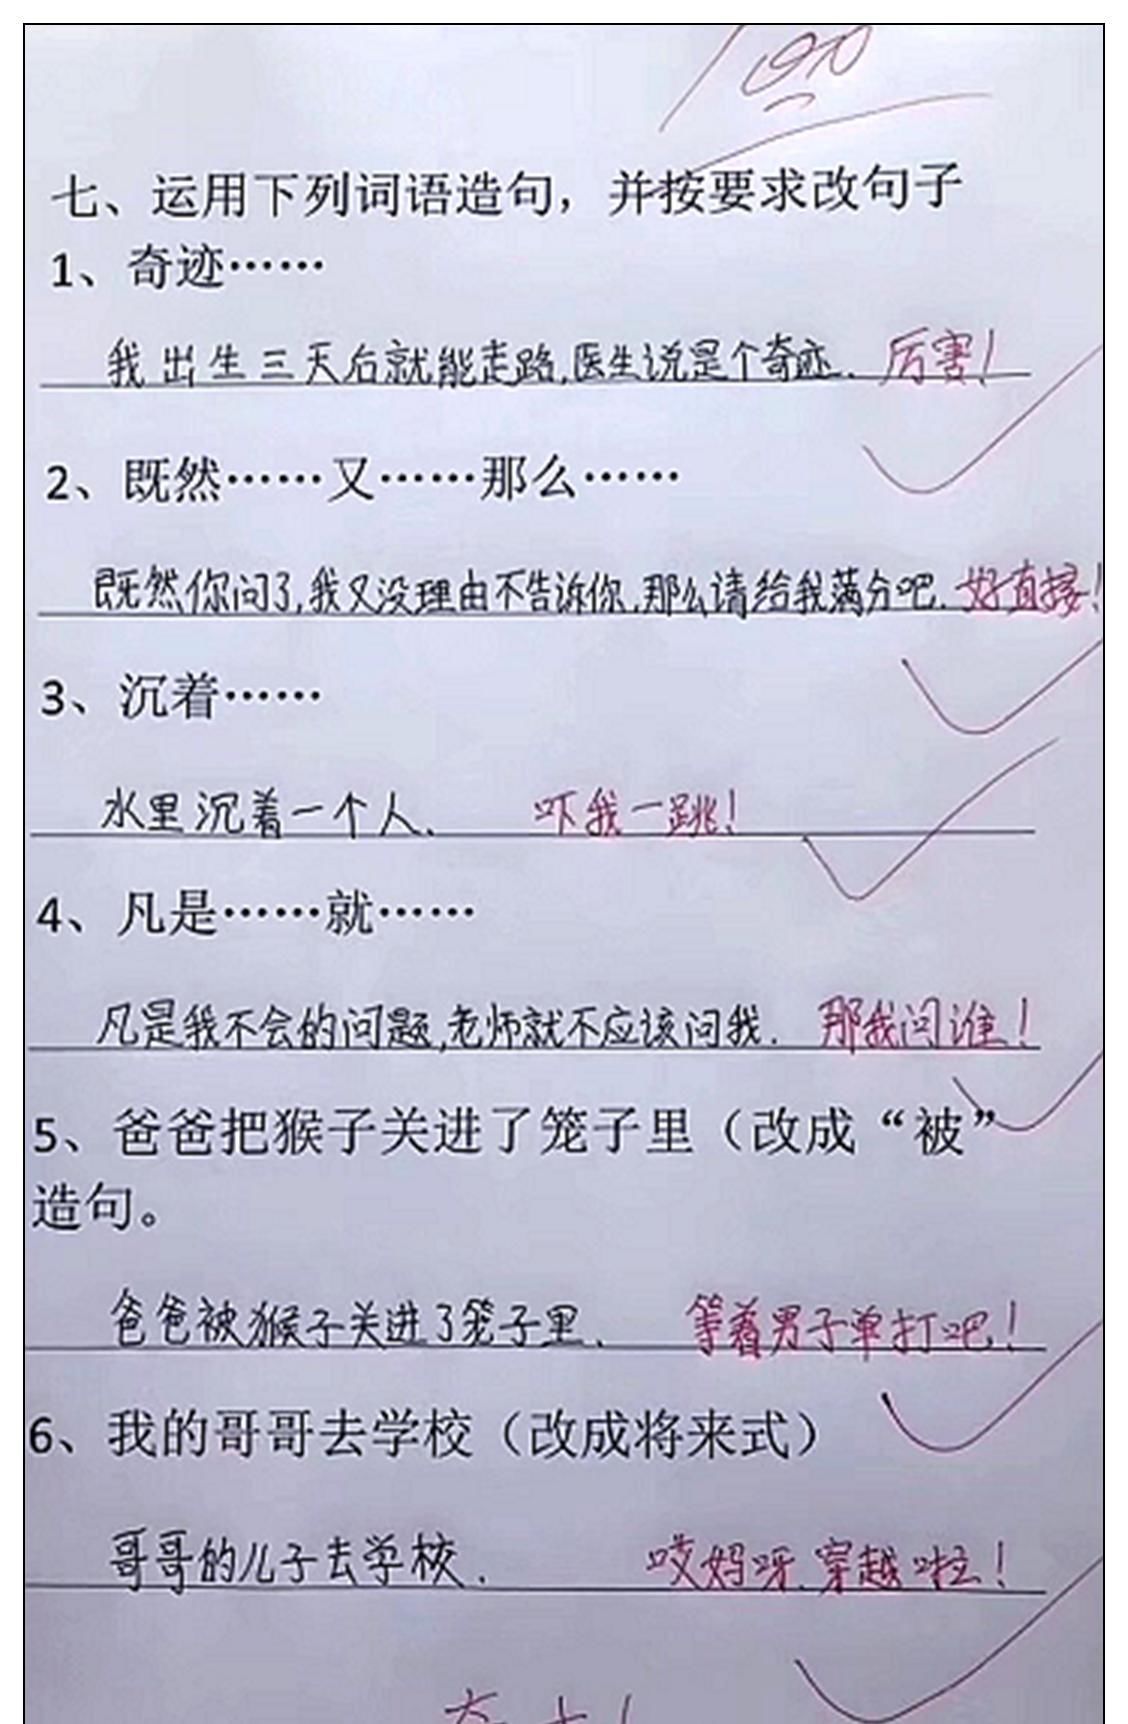 100
七、运用下列词语造句，并按要求改句子
1、奇迹……
我出生三天后就能走路,医生说是个奇迹. 厉害!
2、既然……又……那么……
既然你问了,我又没理由不告诉你,那么请给我满分吧. 好直接!
3、沉着……
水里沉着一个人. 吓我一跳!
4、凡是……就……
凡是我不会的问题,老师就不应该问我. 那我问谁!
5、爸爸把猴子关进了笼子里（改成“被”
造句。
爸爸被猴子关进了笼子里. 等着男子单打吧!
6、我的哥哥去学校（改成将来式）
哥哥的儿子去学校. 哎妈呀.穿越啦!